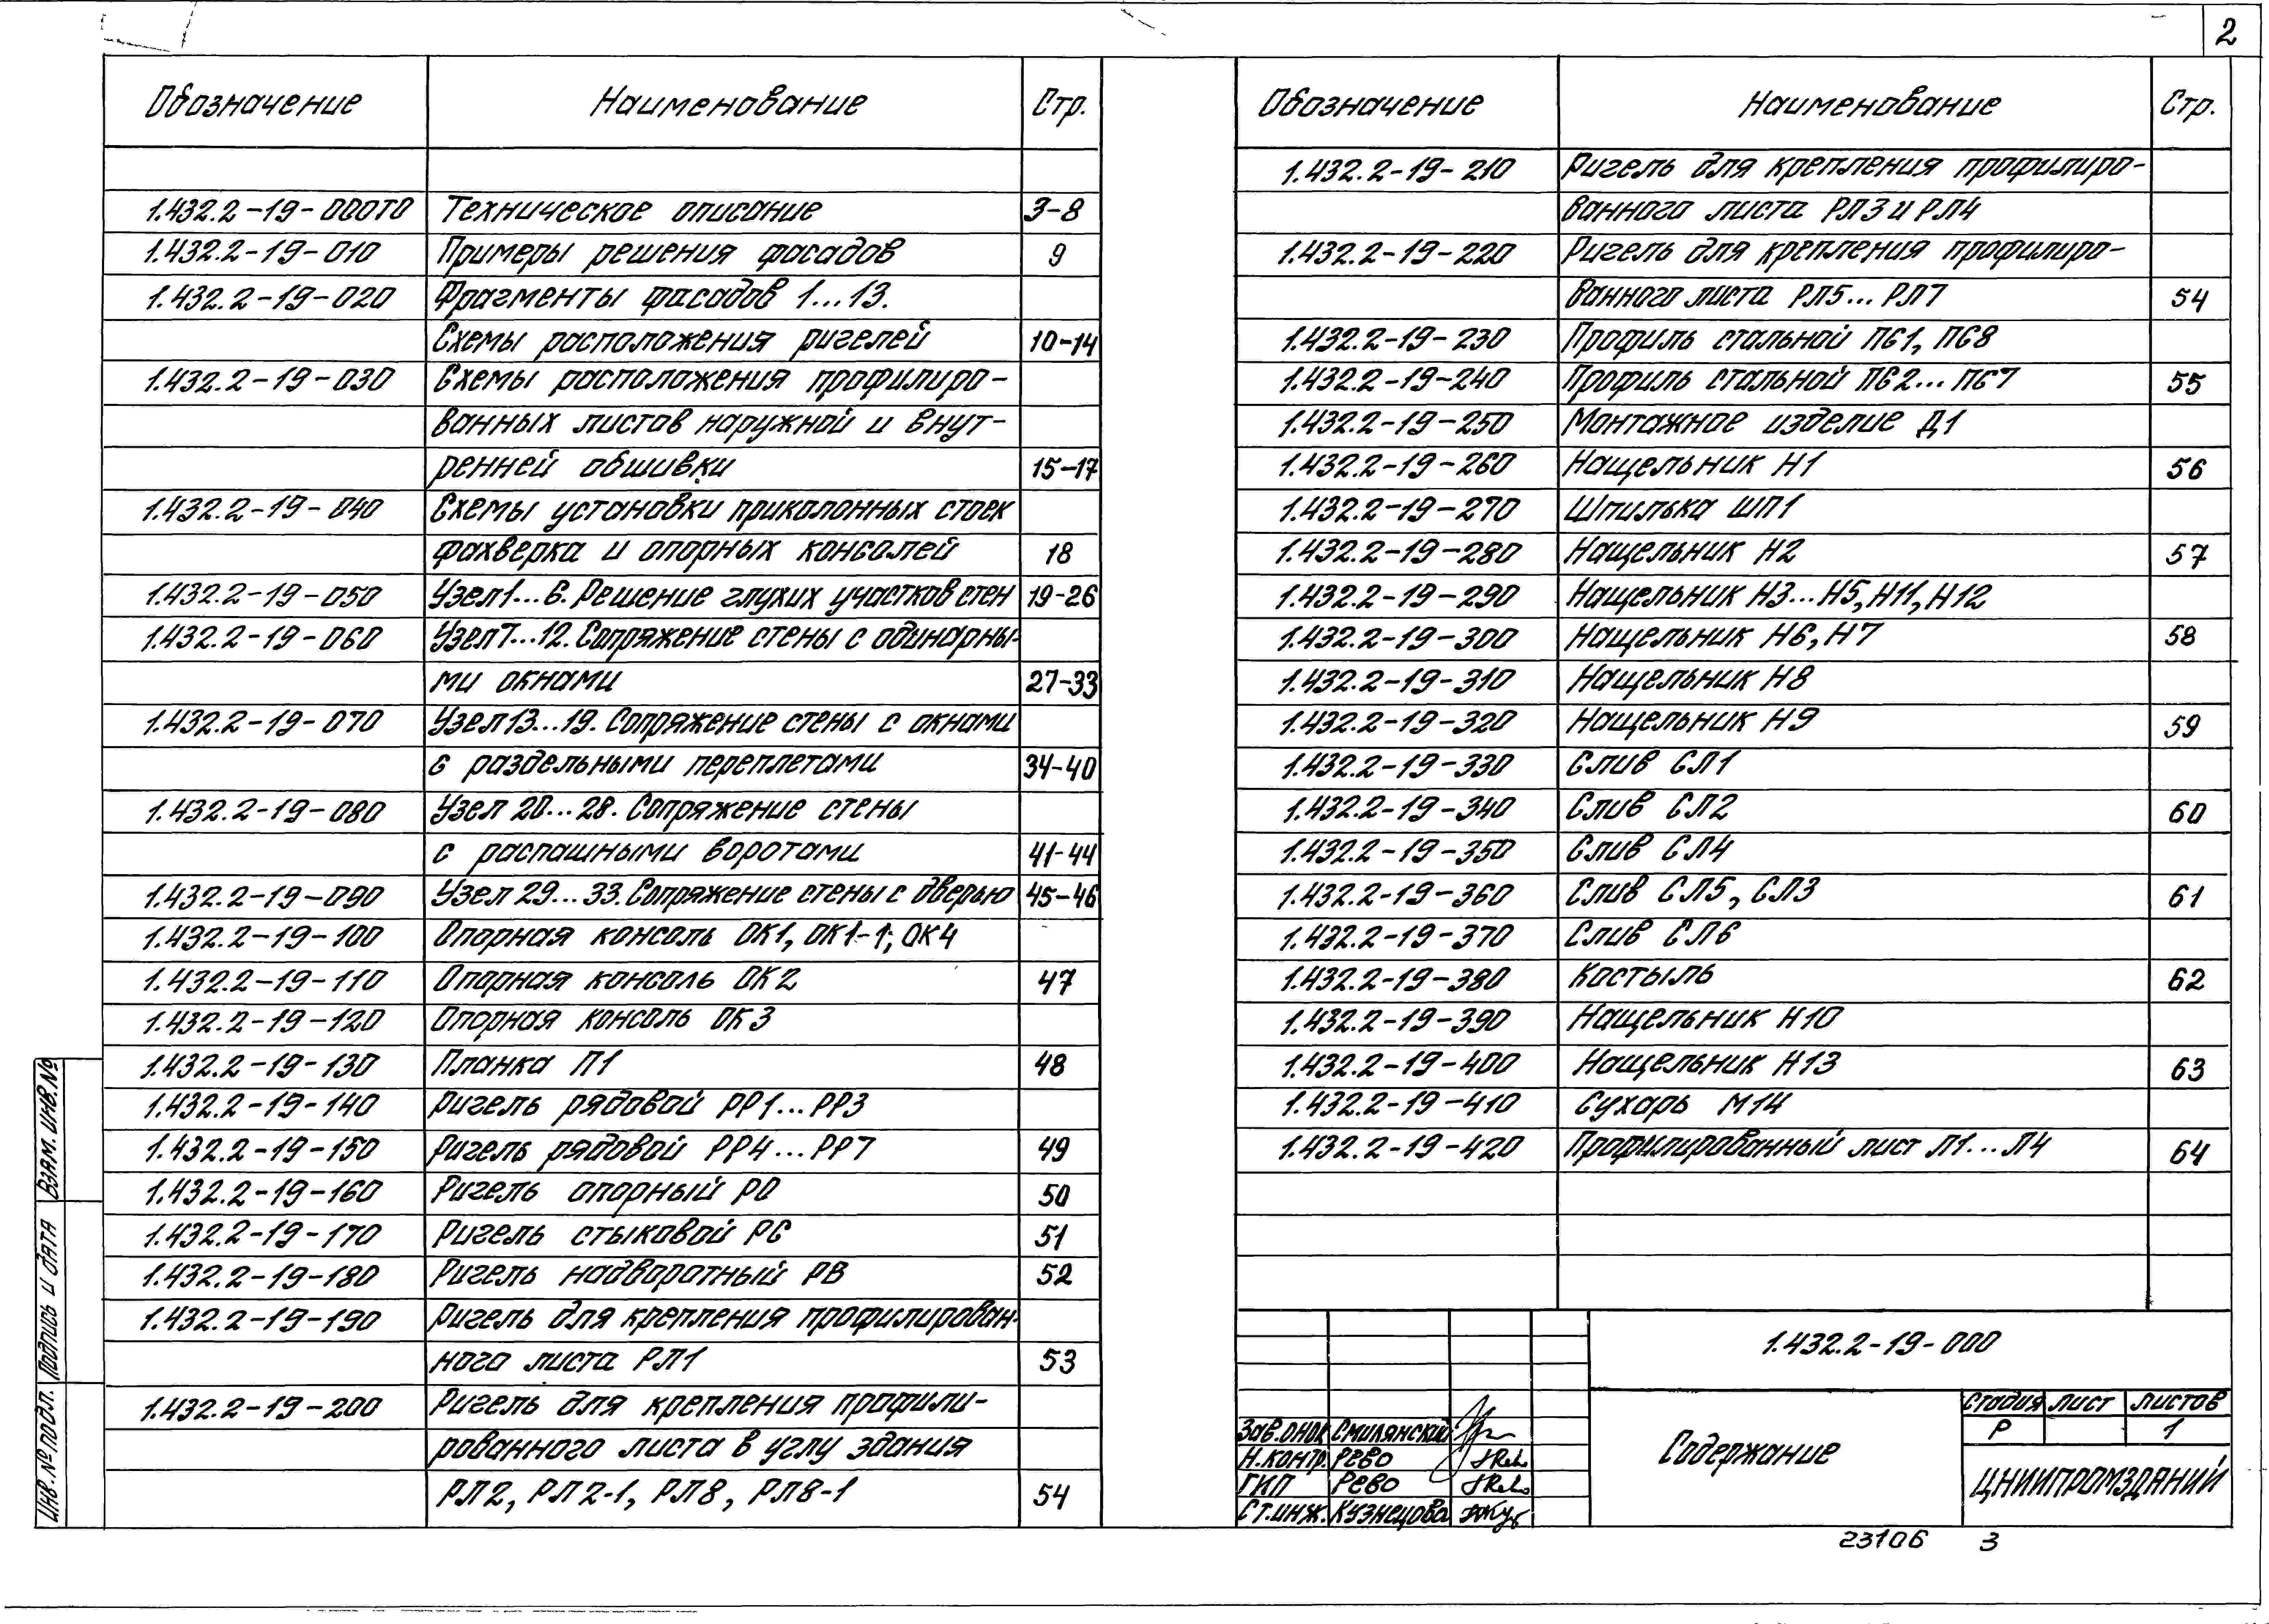 2
Обозначение Наименование Стр.
1.432.2-19-000ТО Техническое описание 3-8
1.432.2-19-010 Примеры решения фасадов 9
1.432.2-19-020 Фрагменты фасадов 1...13.
Схемы расположения ригелей 10-14
1.432.2-19-030 Схемы расположения профилиро-
ванных листов наружной и внут-
ренней обшивки 15-17
1.432.2-19-040 Схемы установки приколонных стоек
фахверка и опорных консолей 18
1.432.2-19-050 Узел 1...6. Решение глухих участков стен 19-26
1.432.2-19-060 Узел 7...12. Сопряжение стены с одинарны-
ми окнами 27-33
1.432.2-19-070 Узел 13...19. Сопряжение стены с окнами
с раздельными переплетами 34-40
1.432.2-19-080 Узел 20...28. Сопряжение стены
с распашными воротами 41-44
1.432.2-19-090 Узел 29...33. Сопряжение стены с дверью 45-46
1.432.2-19-100 Опорная консоль ОК1, ОК1-1; ОК4
1.432.2-19-110 Опорная консоль ОК2 47
1.432.2-19-120 Опорная консоль ОК3
1.432.2-19-130 Планка П1 48
1.432.2-19-140 Ригель рядовой РР1...РР3
1.432.2-19-150 Ригель рядовой РР4...РР7 49
1.432.2-19-160 Ригель опорный РО 50
1.432.2-19-170 Ригель стыковой РС 51
1.432.2-19-180 Ригель надворотный РВ 52
1.432.2-19-190 Ригель для крепления профилирован-
ного листа РЛ1 53
1.432.2-19-200 Ригель для крепления профили-
рованного листа в углу здания
РЛ2, РЛ2-1, РЛ8, РЛ8-1 54
Обозначение Наименование Стр.
1.432.2-19-210 Ригель для крепления профилиро-
ванного листа РЛ3 и РЛ4
1.432.2-19-220 Ригель для крепления профилиро-
ванного листа РЛ5...РЛ7 54
1.432.2-19-230 Профиль стальной ПС1, ПС8
1.432.2-19-240 Профиль стальной ПС2...ПС7 55
1.432.2-19-250 Монтажное изделие Д1
1.432.2-19-260 Нащельник Н1 56
1.432.2-19-270 Шпилька ШП1
1.432.2-19-280 Нащельник Н2 57
1.432.2-19-290 Нащельник Н3...Н5, Н11, Н12
1.432.2-19-300 Нащельник Н6, Н7 58
1.432.2-19-310 Нащельник Н8
1.432.2-19-320 Нащельник Н9 59
1.432.2-19-330 Слив СЛ1
1.432.2-19-340 Слив СЛ2 60
1.432.2-19-350 Слив СЛ4
1.432.2-19-360 Слив СЛ5, СЛ3 61
1.432.2-19-370 Слив СЛ6
1.432.2-19-380 Костыль 62
1.432.2-19-390 Нащельник Н10
1.432.2-19-400 Нащельник Н13 63
1.432.2-19-410 Сухарь М14
1.432.2-19-420 Профилированный лист Л1...Л4 64
1.432.2-19-000
Содержание
Стадия лист листов
Р 1
ЦНИИПРОМЗДАНИЙ
Зав.ОНОК Смилянский
Н.контр. Рево
ГИП Рево
Ст.инж. Кузнецова
Взам. инв.№
Подпись и дата
Инв.№ подл.
23106 3